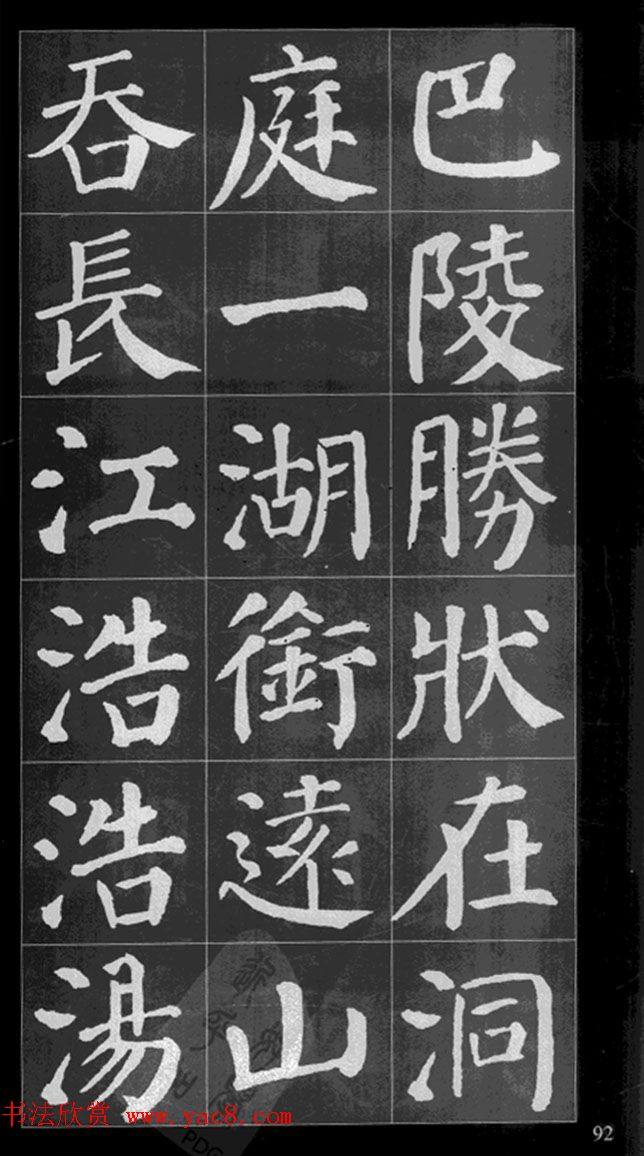 巴陵勝狀在洞
庭一湖銜遠山
吞長江浩浩湯
书法欣赏 www.yac8.com
PDG
92